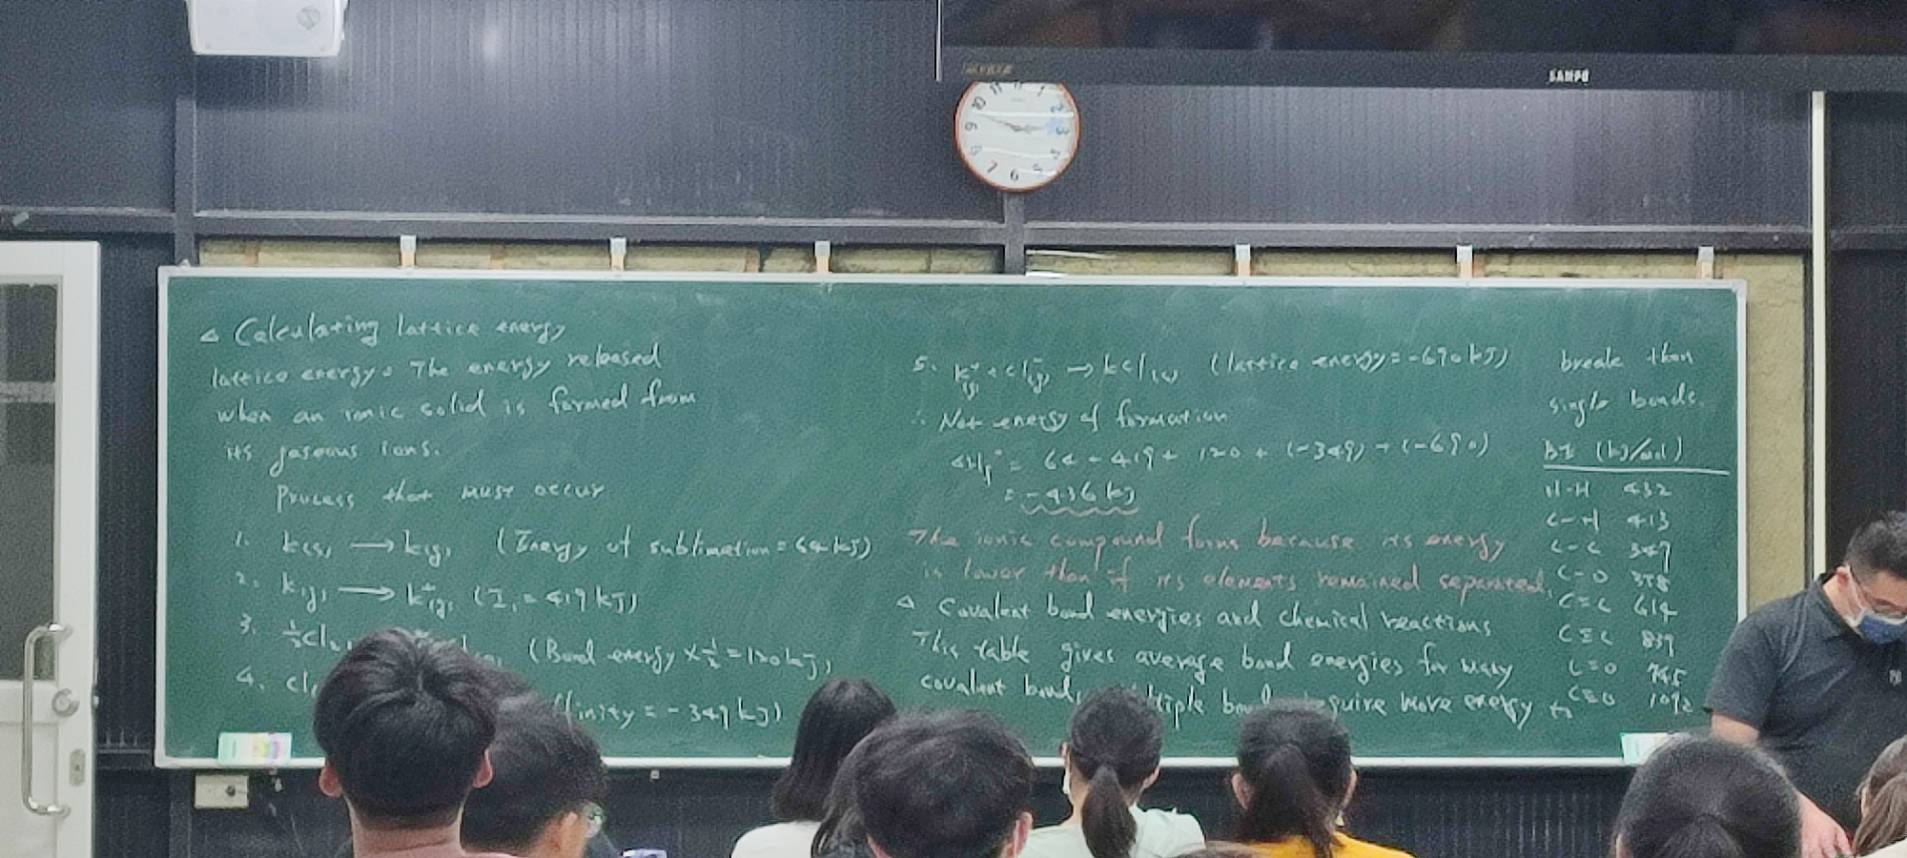 SANPO
△ Calculating lattice energy
lattice energy: The energy released
when an ionic solid is formed from
its gaseous ions.
Process that must occur
1. K(s) → K(g) (Energy of sublimation = 64 kJ)
2. K(g) → K⁺(g) (I₁ = 419 kJ)
3. ½Cl₂ (Bond energy × ½ = 120 kJ)
4. Cl finity = -349 kJ)
5. K⁺(g) + Cl⁻(g) → KCl(s) (lattice energy = -690 kJ)
∴ Net energy of formation
ΔHf° = 64 + 419 + 120 + (-349) + (-690)
= -436 kJ
The ionic compound forms because its energy
is lower than if its elements remained separated.
△ Covalent bond energies and chemical reactions
This table gives average bond energies for many
covalent bond require more energy to
break than
single bonds.
BE (kJ/mol)
H-H 432
C-H 413
C-C 347
C-O 358
C=C 614
C≡C 839
C=O 745
C≡O 1072